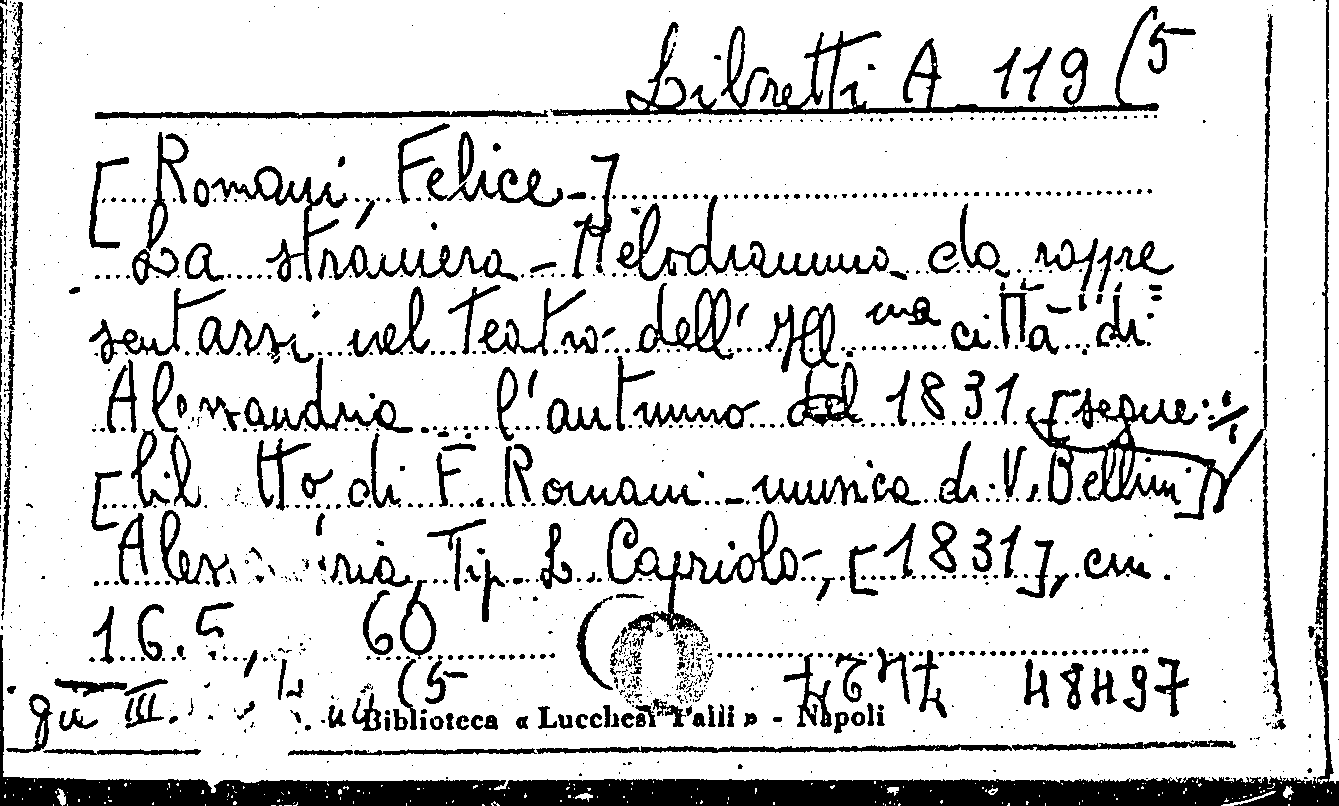 Libretti A 119 (5
[Romani, Felice-]
La straniera - Melodramma da rappre
sentarsi nel teatro dell' Ill.ma città di
Alessandria... l'autunno del 1831. [segue: ./.
[lib tto di F. Romani - musica di V. Bellini]
Aless ria, Tip. L. Capriolo, [1831], cm.
16.5, 60
già III. (5 48497
Biblioteca « Lucchesi Palli » - Napoli